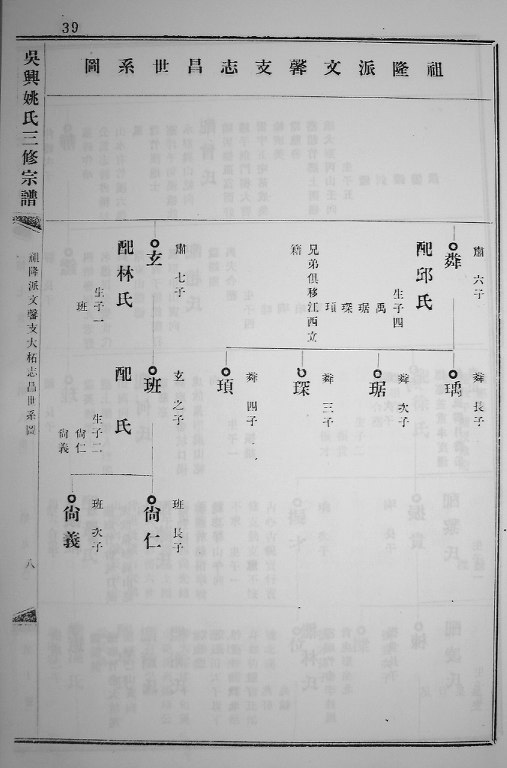 39
吳興姚氏三修宗譜
祖隆派文馨支大柘志昌世系圖
八
祖隆派文馨支志昌世系圖
肅 六子
粦
配邱氏
生子四
禹
琚
琛
頊
兄弟俱移江西立
籍
肅 七子
玄
配林氏
生子一
班
粦 長子
瑀
粦 次子
琚
粦 三子
琛
粦 四子
頊
玄 之子
班
配 氏
生子二
尙仁
尙義
班 長子
尙仁
班 次子
尙義